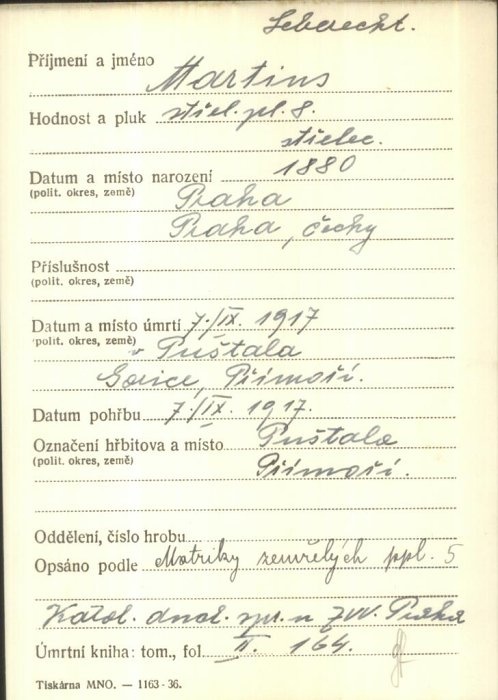 Leberecht.
Příjmení a jméno
Martins
Hodnost a pluk střel. pl. 8.
střelec.
Datum a místo narození 1880
(polit. okres, země) Praha
Praha, Čechy
Příslušnost
(polit. okres, země)
Datum a místo úmrtí 7./IX. 1917
(polit. okres, země) v Puštala
Gorice, Přímoří.
Datum pohřbu 7./IX. 1917.
Označení hřbitova a místo Puštala
(polit. okres, země) Přímoří.
Oddělení, číslo hrobu
Opsáno podle Matriky zemřelých ppl. 5
Katol. duch. spr. u ZVV. Praha
Úmrtní kniha: tom., fol. II. 164.
Tiskárna MNO. — 1163-36.